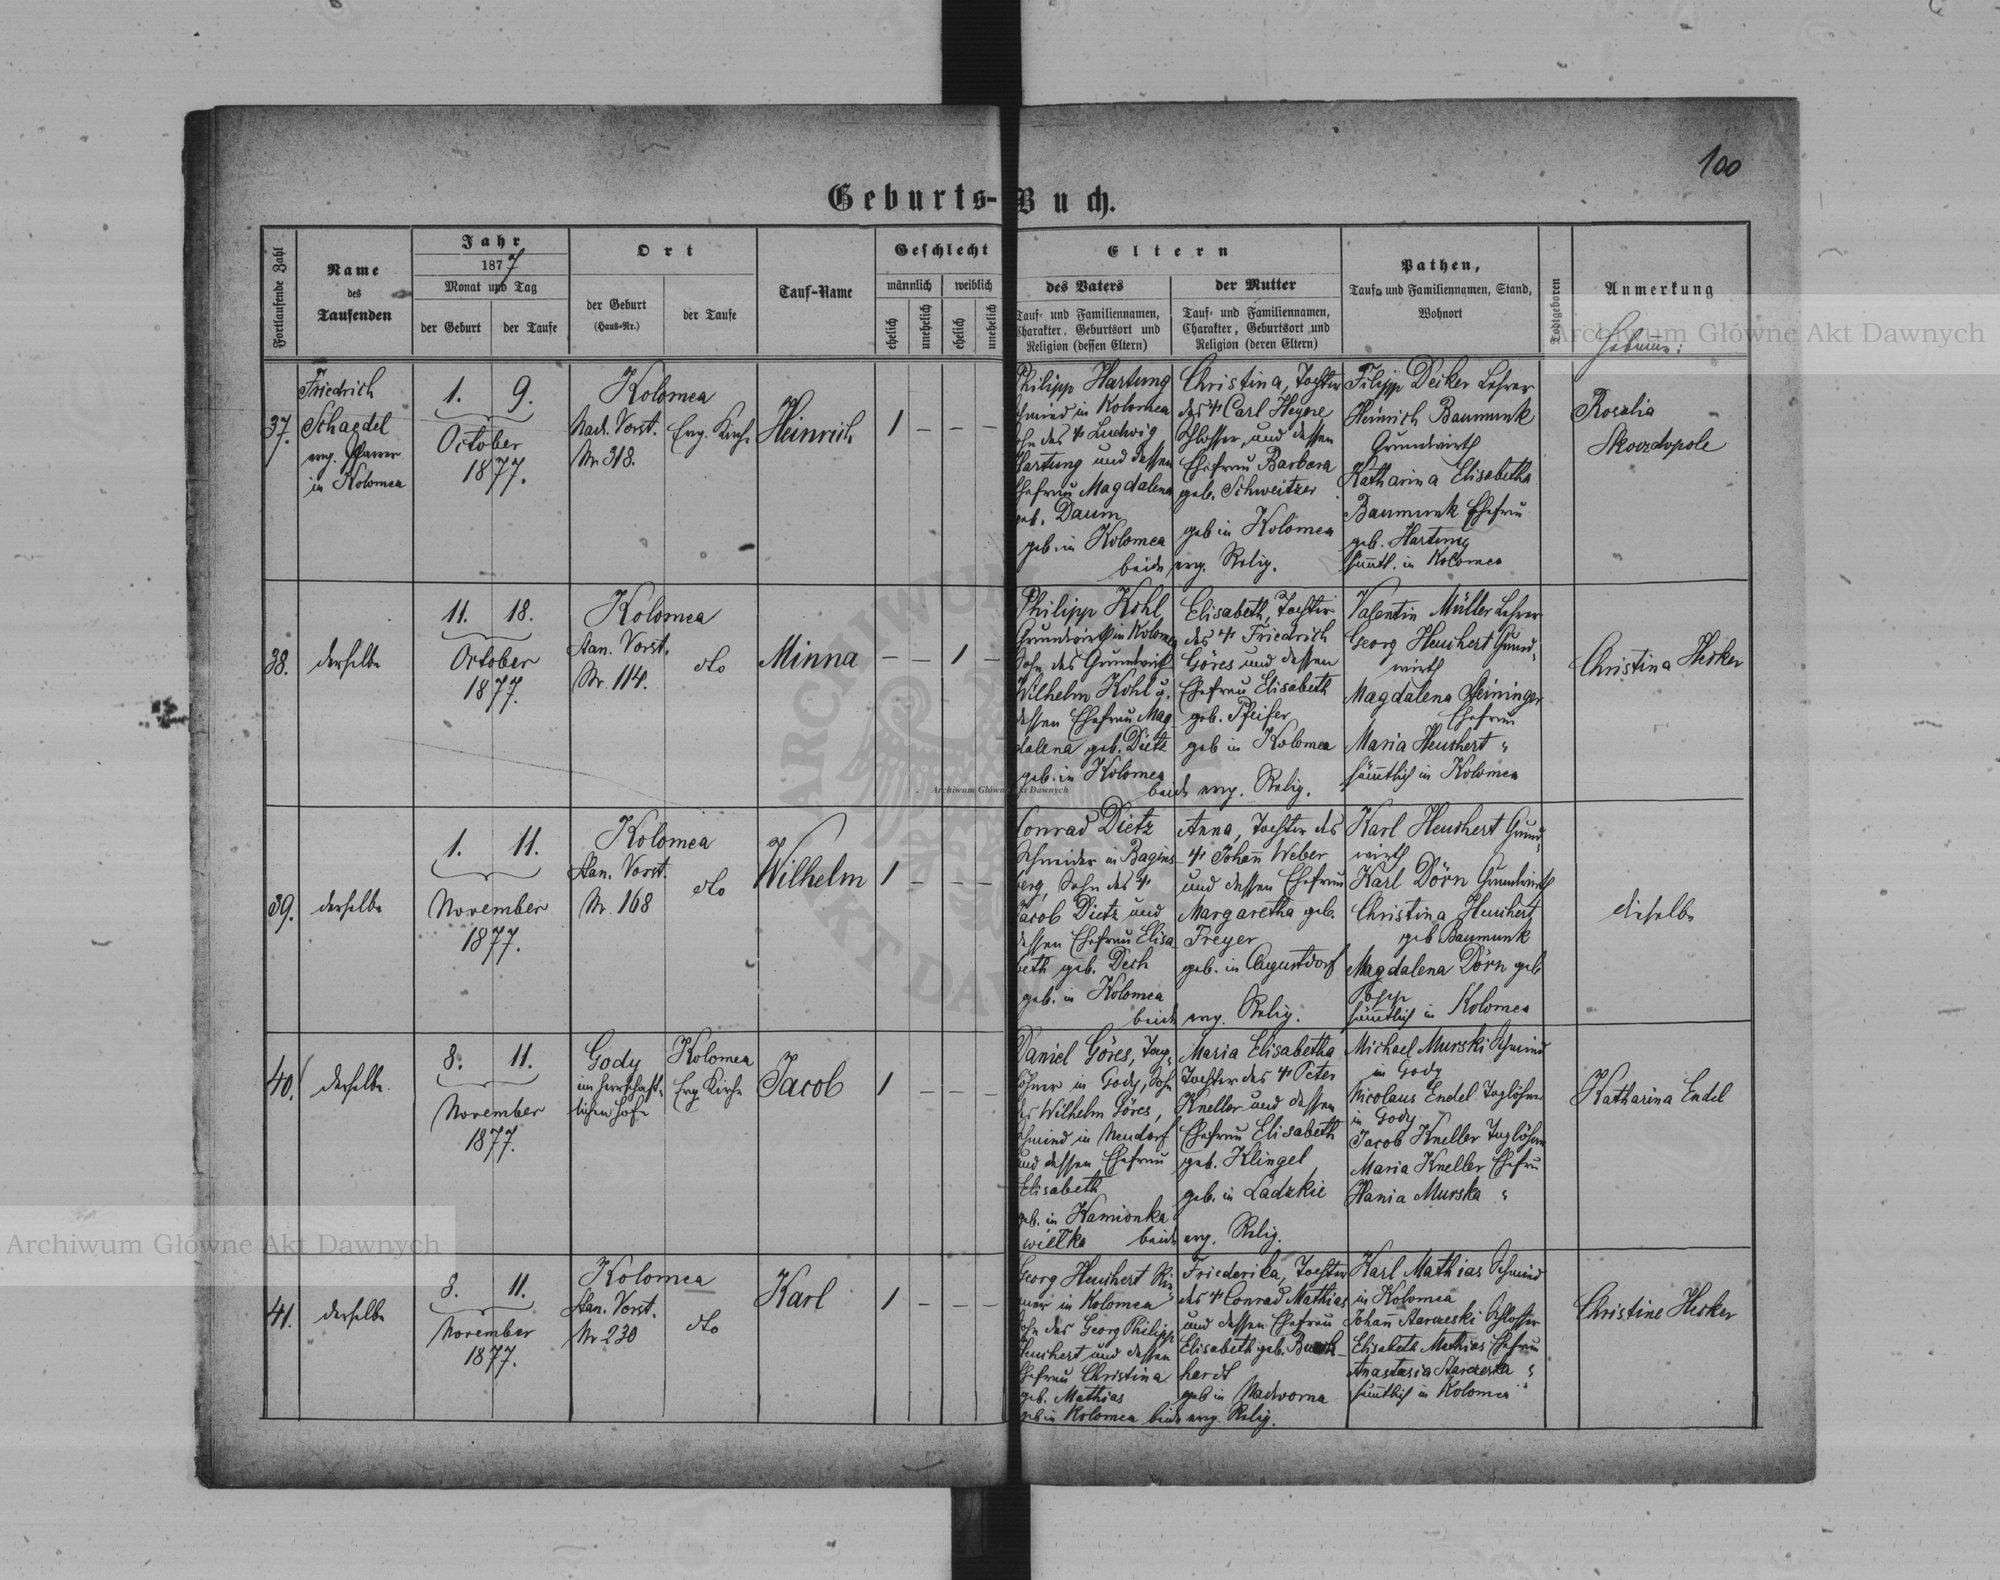 100
Geburts-Buch.
Fortlaufende Zahl
Name
des
Taufenden
Jahr
1877
Monat und Tag
der Geburt
der Taufe
Ort
der Geburt
(Haus-Nr.)
der Taufe
Tauf-Name
Geschlecht
männlich
weiblich
ehelich
unehelich
ehelich
unehelich
Eltern
des Vaters
Tauf- und Familiennamen,
Charakter, Geburtsort und
Religion (dessen Eltern)
der Mutter
Tauf- und Familiennamen,
Charakter, Geburtsort und
Religion (deren Eltern)
Pathen,
Tauf- und Familiennamen, Stand,
Wohnort
Todtgeboren
Anmerkung
Hebamme:
37.
Friedrich
Schaedel
evg. Pfarrer
in Kolomea
1. 9.
October
1877.
Kolomea
Nad. Vorst.
Nr. 318.
Evg. Kirche
Heinrich
1 – – –
Philipp Hartung
Schmied in Kolomea
Sohn des † Ludwig
Hartung und dessen
Ehefrau Magdalena
geb. Daum
geb. in Kolomea
beide
Christina, Tochter
des † Carl Heyne
Schlosser, und dessen
Ehefrau Barbara
geb. Schweitzer
geb in Kolomea
evg. Relig.
Filipp Decker Lehrer
Heinrich Baumunk
Grundwirth
Katharina Elisabetha
Baumunk Ehefrau
geb. Hartung
sämtl. in Kolomea
Rosalia
Skoczdopole
38.
derselbe
11. 18.
October
1877.
Kolomea
Stan. Vorst.
Nr. 114.
dto
Minna
– – 1 –
Philipp Kohl
Grundwirth in Kolomea
Sohn des Grundwirth
Wilhelm Kohl u.
dessen Ehefrau Mag
dalena geb. Dietz
geb. in Kolomea
beide
Elisabeth, Tochter
des † Friedrich
Göres und dessen
Ehefrau Elisabeth
geb. Pfeifer
geb in Kolomea
evg. Relig.
Valentin Müller Lehrer
Georg Heuchert Grund-
wirth
Magdalena Deininger
Ehefrau
Maria Heuchert "
sämtlich in Kolomea
Christina Herker
39.
derselbe
1. 11.
November
1877.
Kolomea
Stan. Vorst.
Nr. 168
dto
Wilhelm
1 – – –
Conrad Dietz
Schneider in Bagins
berg, Sohn des †
Jacob Dietz und
dessen Ehefrau Elisa
beth geb. Dech
geb. in Kolomea
beide
Anna, Tochter des
† Johann Weber
und dessen Ehefrau
Margaretha geb.
Freyer
geb. in Augustdorf
evg. Relig.
Karl Heuchert Grund-
wirth
Karl Dörn Grundwirth
Christina Heuchert
geb Baumunk
Magdalena Dörn geb
sämtlich in Kolomea
dieselbe
40.
derselbe.
8. 11.
November
1877.
Gody
im herrschaft-
lichen Hofe
Kolomea
Evg Kirche
Jacob
1 – – –
Daniel Göres, Tag-
löhner in Gody, Sohn
des Wilhelm Göres,
Schmied in Neudorf
und dessen Ehefrau
Elisabeth
geb. in Kamionka
wielka
beide
Maria Elisabetha
Tochter des † Peter
Kneller und dessen
Ehefrau Elisabeth
geb. Klingel
geb. in Ladzkie
evg. Relig.
Michael Murski Schmied
in Gody
Nicolaus Endel Taglöhner
in Gody
Jacob Kneller Taglöhner
Maria Kneller Ehefrau
Hania Murska "
Katharina Endel
41.
derselbe
8. 11.
November
1877.
Kolomea
Stan. Vorst.
Nr 230
dto
Karl
1 – – –
Georg Heuchert Rie-
mer in Kolomea
Sohn des Georg Philipp
Heuchert und dessen
Ehefrau Christina
geb. Mathias
geb in Kolomea beide
Friederika, Tochter
des † Conrad Mathias
und dessen Ehefrau
Elisabeth geb. Burk-
hardt
geb in Nadworna
evg. Relig.
Karl Mathias Schmied
in Kolomea
Johann Starzeski Schlosser
Elisabeth Mathias Ehefrau
Anastasia Starzeska "
sämtlich in Kolomea
Christine Herker
Archiwum Główne Akt Dawnych
Archiwum Główne Akt Dawnych
Archiwum Główne Akt Dawnych